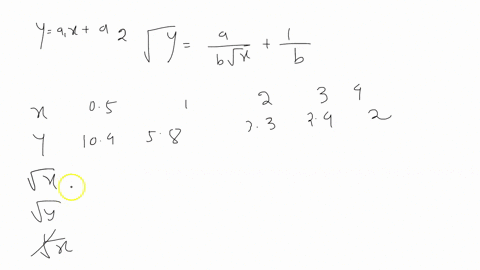 y = a₁x + a 2 √y = a/(b√x) + 1/b
x 0.5 1 2 3 4
y 10.4 5.8 3.3 2.4 2
√x
√y
√x